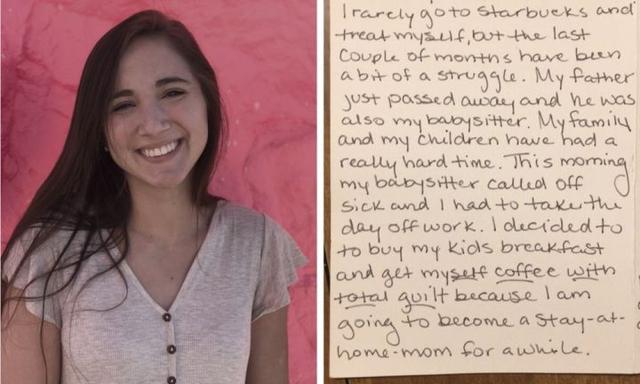 I rarely go to Starbucks and
treat myself, but the last
couple of months have been
a bit of a struggle. My father
just passed away and he was
also my babysitter. My family
and my children have had a
really hard time. This morning
my babysitter called off
sick and I had to take the
day off work. I decided to
to buy my kids breakfast
and get myself coffee with
total guilt because I am
going to become a stay-at-
home-mom for awhile.